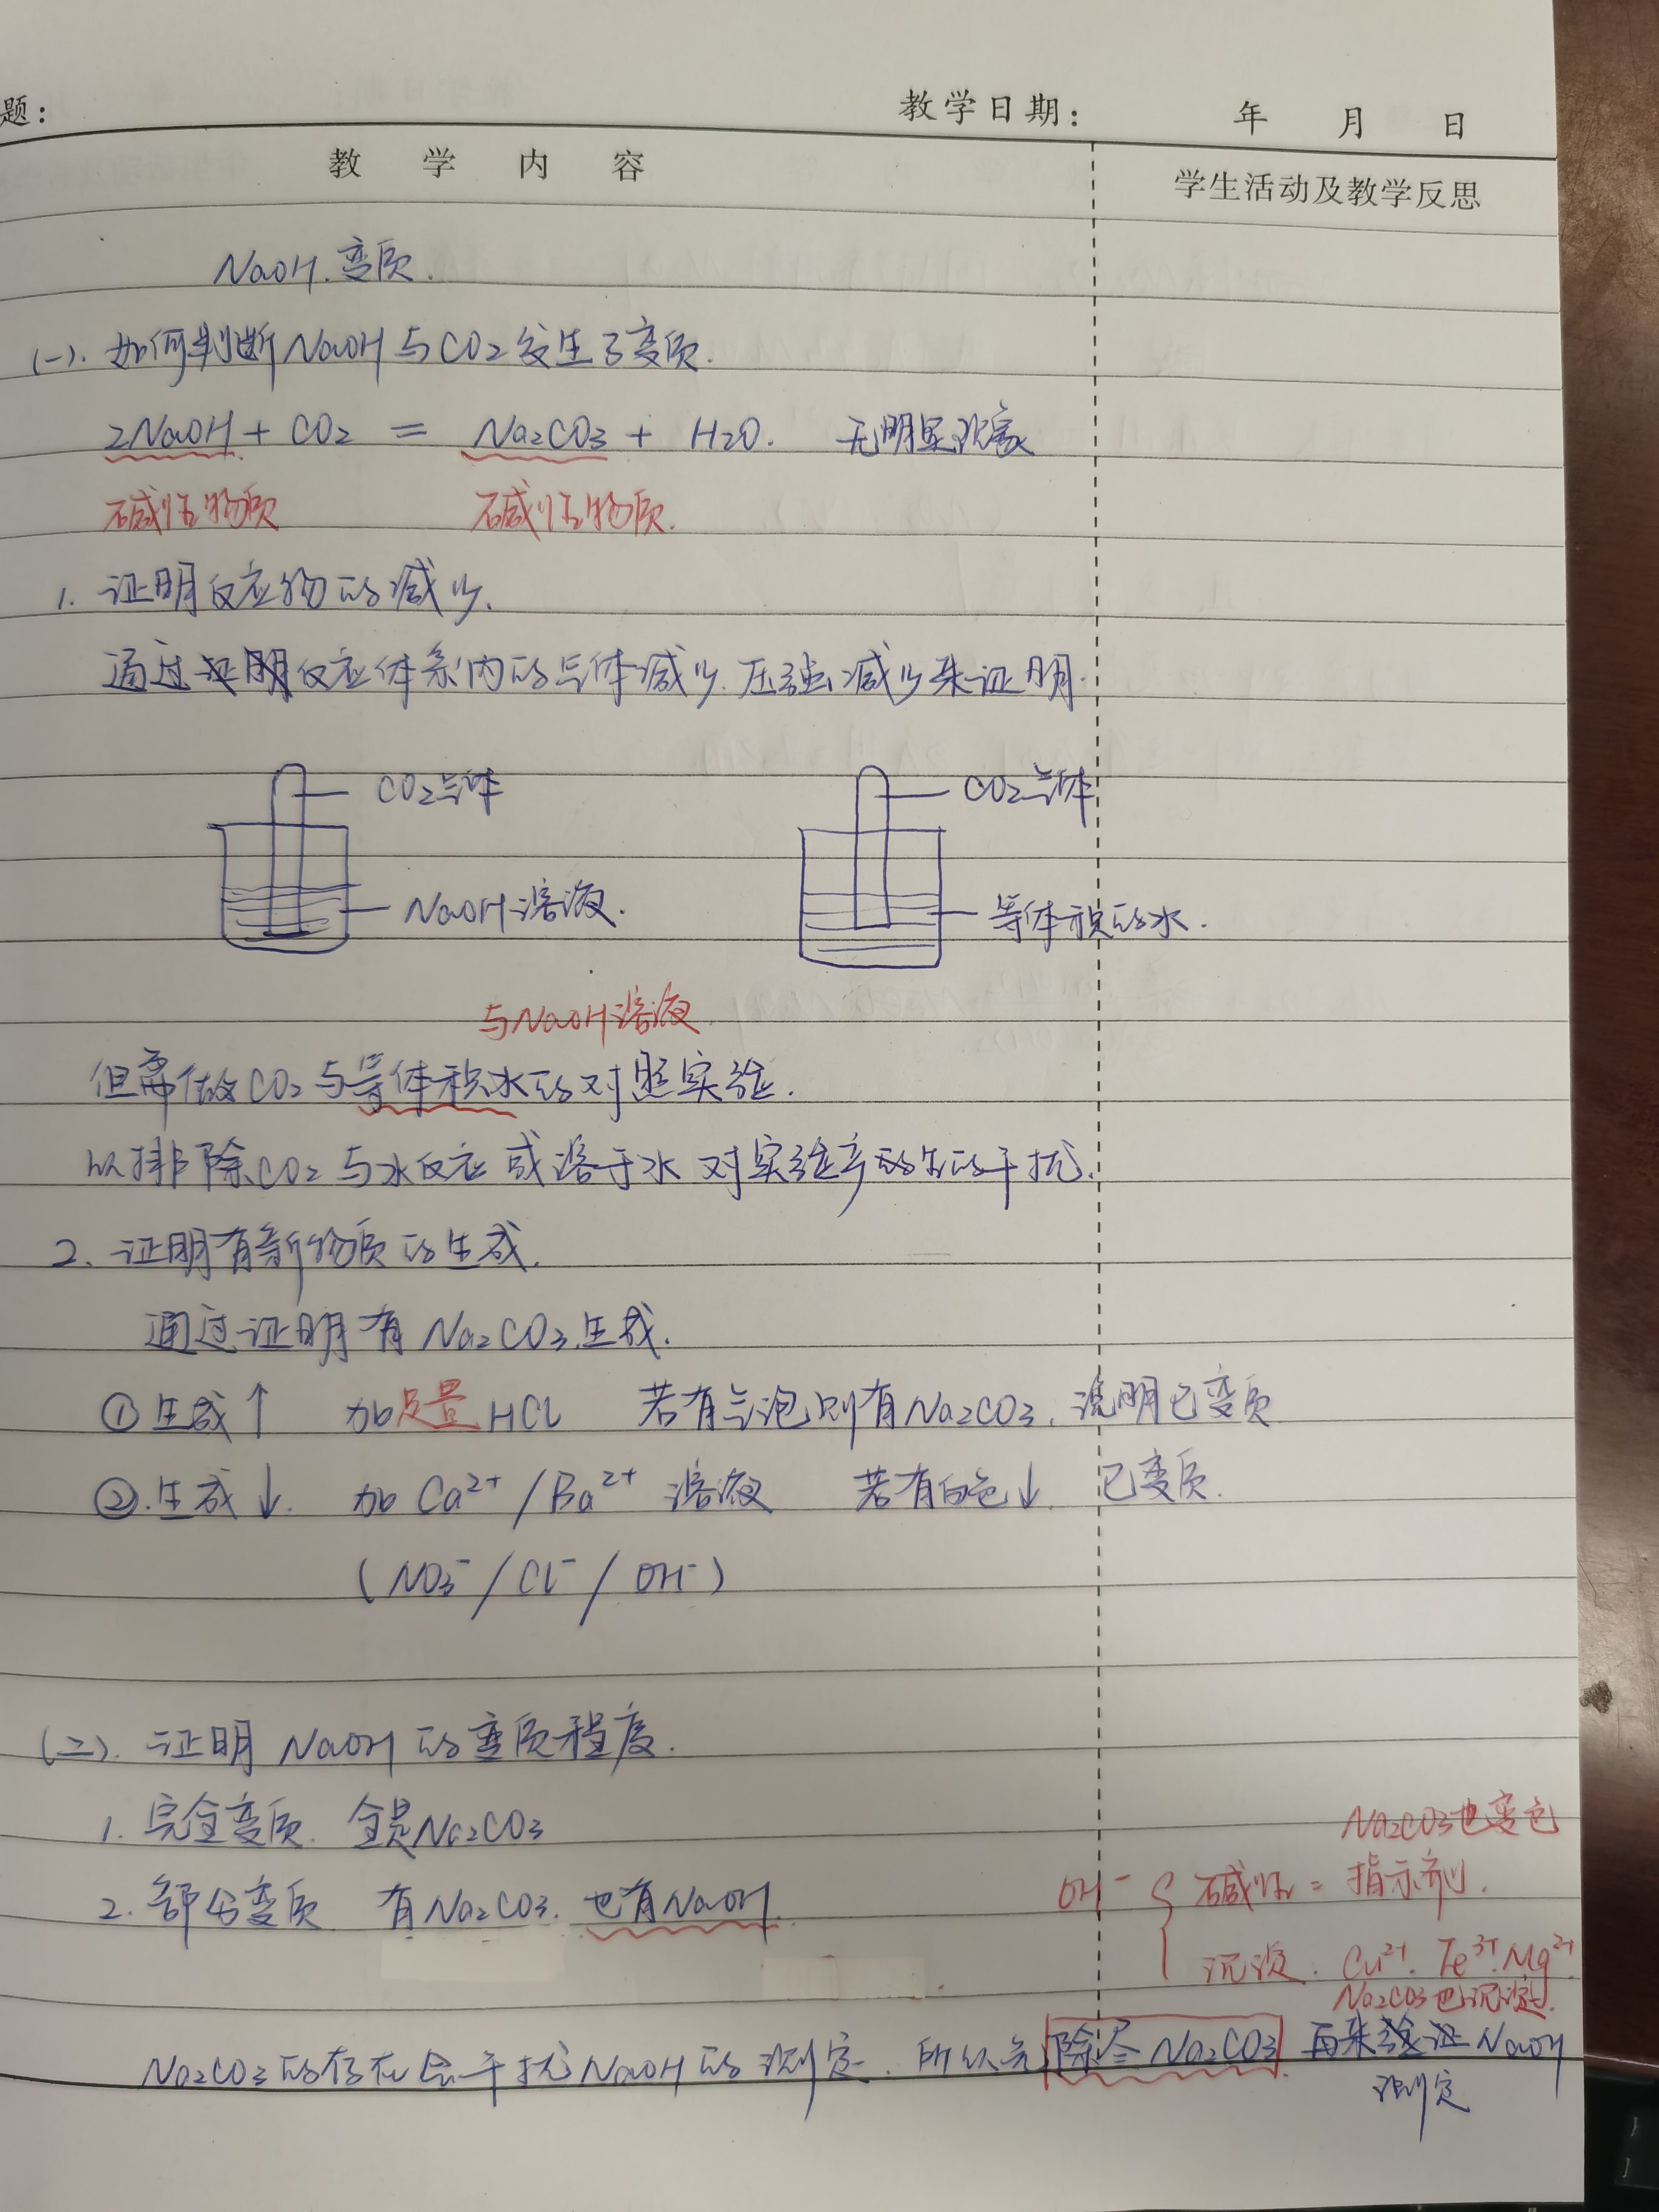 题：
教学日期： 年 月 日
教 学 内 容
学生活动及教学反思
NaOH.变质.
(一). 如何判断NaOH与CO2发生了变质.
2NaOH + CO2 = Na2CO3 + H2O. 无明显现象
碱性物质 碱性物质.
1. 证明反应物的减少.
通过证明反应体系内的气体减少.压强减少来证明.
CO2气体 CO2气体
NaOH溶液. 等体积的水.
与NaOH溶液
但需做CO2与等体积水的对照实验.
以排除CO2与水反应或溶于水对实验产生的干扰.
2. 证明有新物质的生成.
通过证明有Na2CO3生成.
①生成↑ 加足量HCl 若有气泡则有Na2CO3. 说明已变质
②.生成↓. 加Ca²⁺/Ba²⁺溶液 若有白色↓. 已变质.
(NO3⁻/Cl⁻/OH⁻)
(二). 证明NaOH的变质程度.
1. 完全变质. 全是Na2CO3
Na2CO3也变色
2. 部分变质 有Na2CO3. 也有NaOH.
OH⁻ { 碱性 = 指示剂.
沉淀. Cu²⁺. Fe³⁺. Mg²⁺
Na2CO3也沉淀.
Na2CO3的存在会干扰NaOH的测定. 所以先除尽Na2CO3. 再来验证NaOH
测定